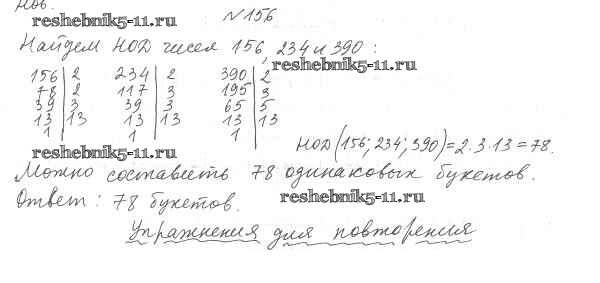 нов.
reshebnik5-11.ru
№156
Найдем НОД чисел 156, 234 и 390 :
reshebnik5-11.ru
156 | 2 234 | 2 390 | 2
78 | 2 117 | 3 195 | 3
39 | 3 39 | 3 65 | 5
13 | 13 13 | 13 13 | 13
1 1 1
НОД(156; 234; 390)=2·3·13=78.
reshebnik5-11.ru
Можно составить 78 одинаковых букетов.
Ответ: 78 букетов.
reshebnik5-11.ru
Упражнения для повторения